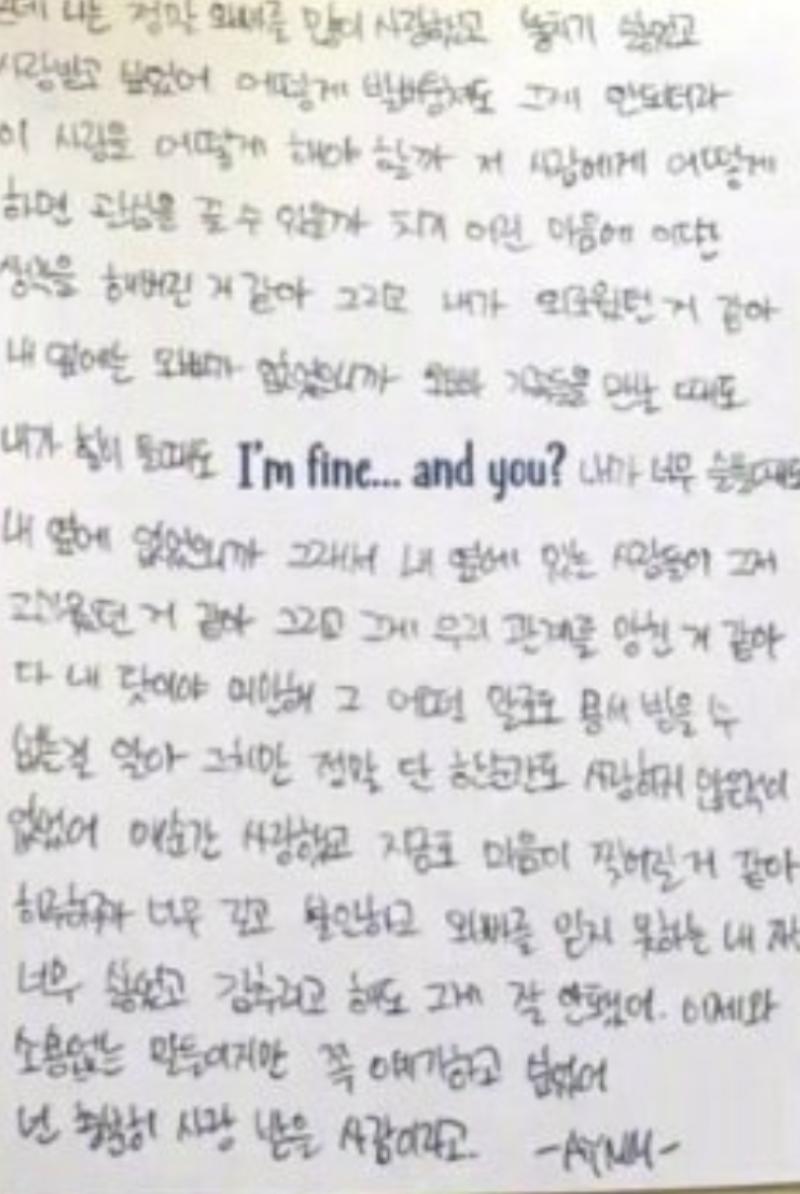 나는 정말 오빠를 많이 사랑했고 놓치기 싫었고
사랑받고 싶었어 어떻게 발버둥쳐도 그게 안되더라
이 사랑을 어떻게 해야 할까 저 사람에게 어떻게
하면 관심을 끌 수 있을까 하지 어린 마음에 이상한
생각을 해버린 거 같아 그리고 내가 외로웠던 거 같아
내 옆에는 오빠가 없었으니까 오빠 가족들을 만날 때도
내가 힘이 들때도 I'm fine... and you? 내가 너무 슬플때도
내 옆에 없었으니까 그래서 내 옆에 있는 사람들이 그저
고마웠던 거 같아 그리고 그게 우리 관계를 망친 거 같아
다 내 탓이야 미안해 그 어떤 말로도 용서 받을 수
없는걸 알아 그치만 정말 단 한순간도 사랑하지 않은적이
없었어 매순간 사랑했고 지금도 마음이 찢어질 거 같아
하루하루가 너무 길고 불안하고 오빠를 믿지 못하는 내
너무 싫었고 감추려고 해도 그게 잘 안됐어. 이제와
소용없는 말들이지만 꼭 얘기하고 싶었어
넌 충분히 사랑 받을 사람이라고.